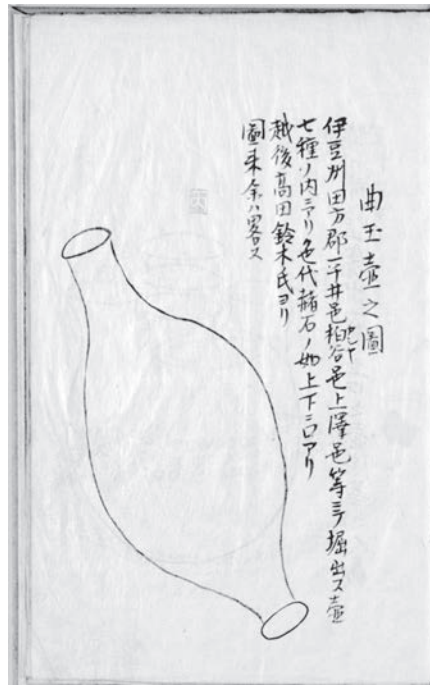 曲玉壺之圖
伊豆州田方郡平井邑柏谷邑上澤邑等ニテ堀出ス壺
七種ノ内ニアリ色代赭石ノ如上下ニ口アリ
越後高田鈴木氏ヨリ
圖来余ハ畧ス